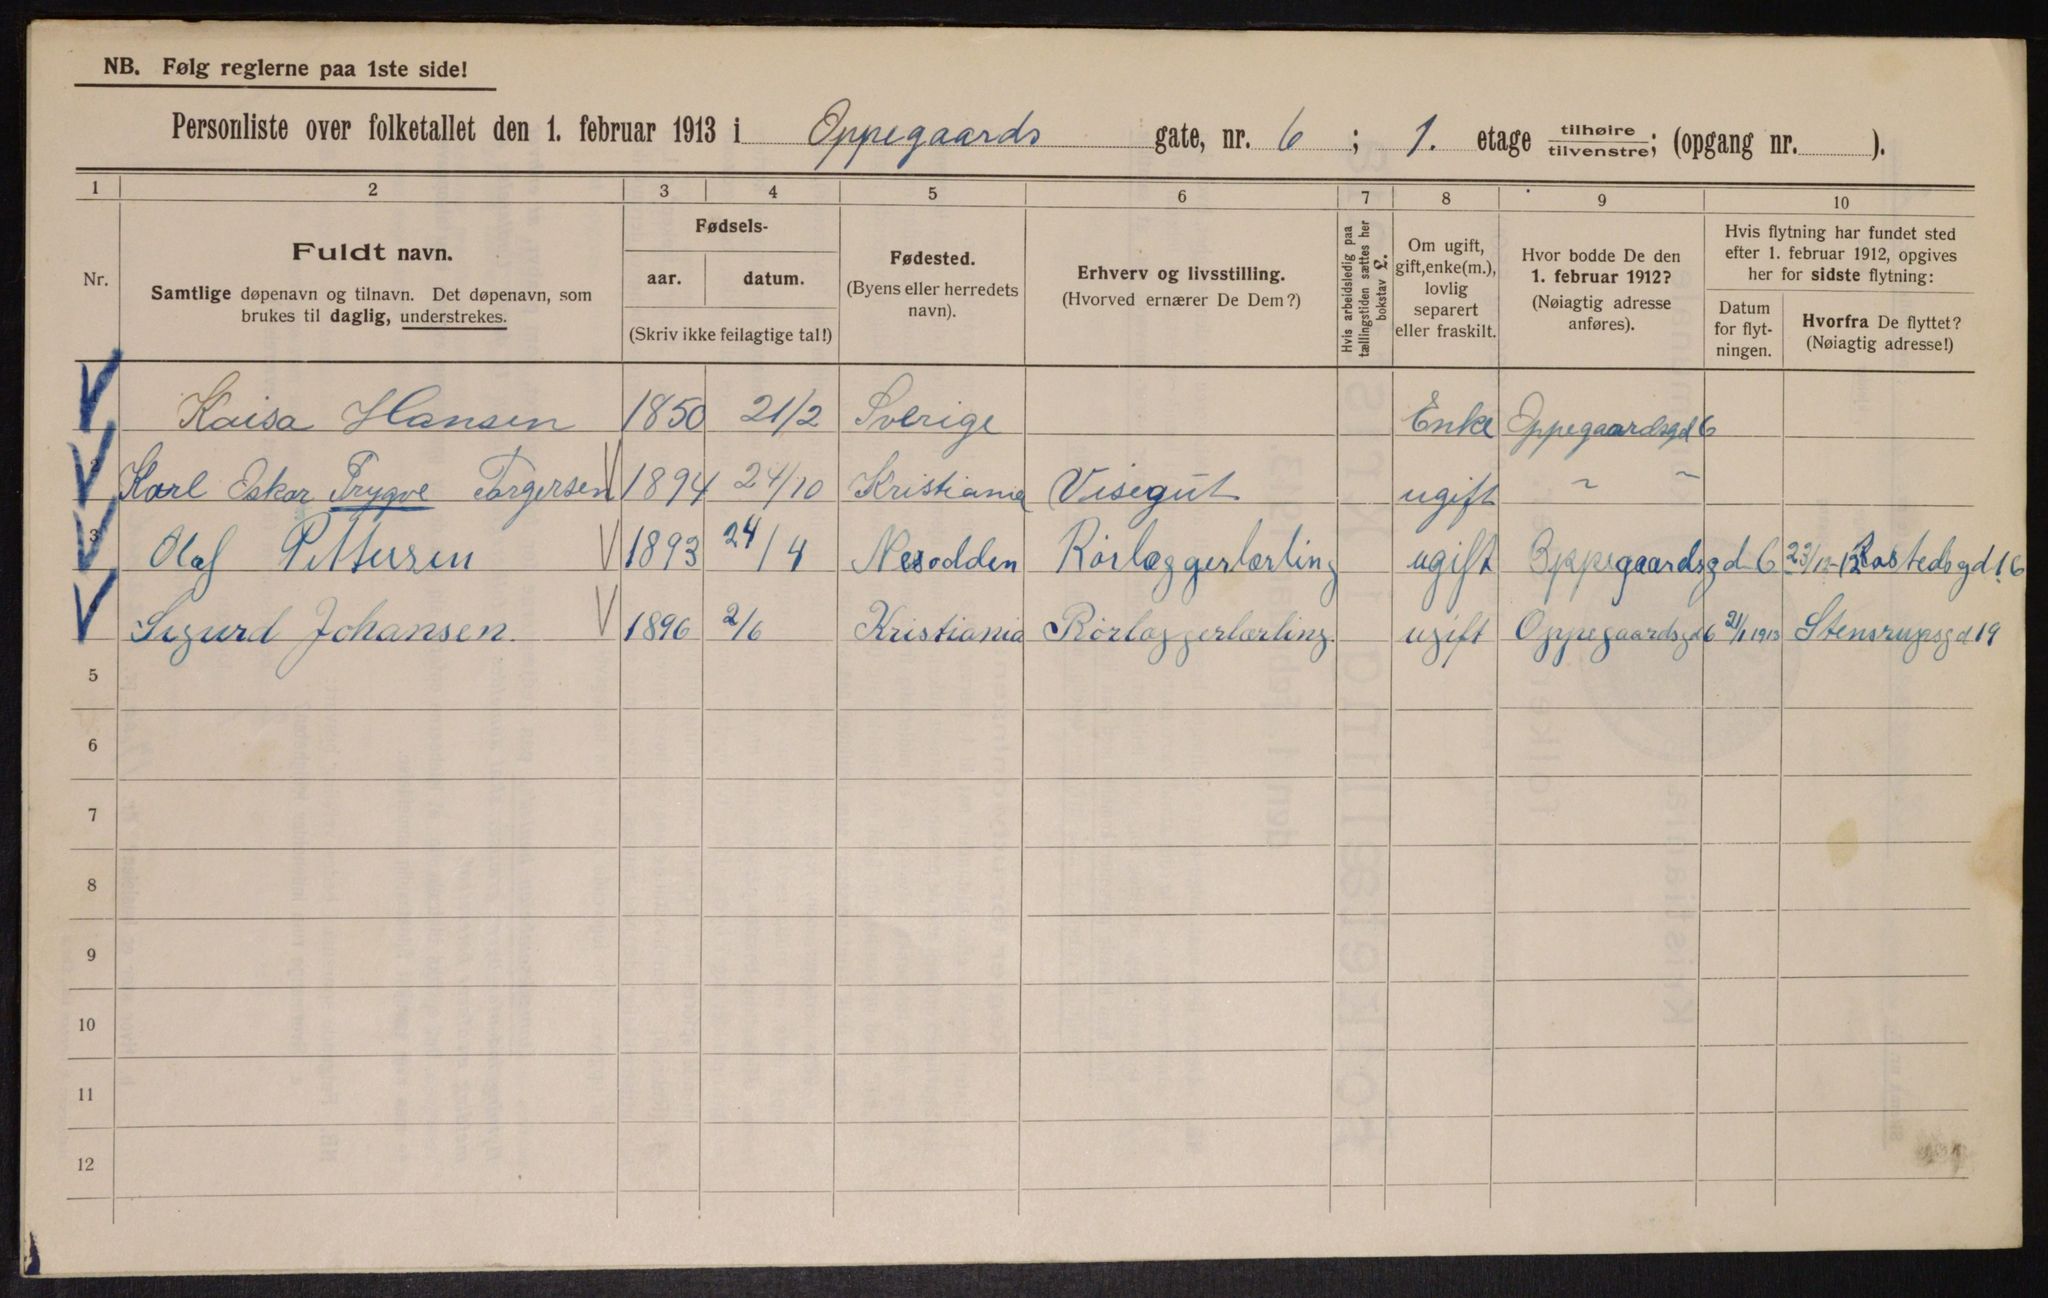 NB. Følg reglerne paa 1ste side!
Personliste over folketallet den 1. februar 1913 i Oppegaards gate, nr. 6 ; 1. etage tilhøire tilvenstre; (opgang nr. ).
1 2 3 4 5 6 7 8 9 10
Nr.
Fuldt navn.
Samtlige døpenavn og tilnavn. Det døpenavn, som
brukes til daglig, understrekes.
Fødsels-
aar. datum.
(Skriv ikke feilagtige tal!)
Fødested.
(Byens eller herredets
navn).
Erhverv og livsstilling.
(Hvorved ernærer De Dem?)
Hvis arbeidsledig paa
tællingstiden sættes her
bokstav £.
Om ugift,
gift, enke(m.),
lovlig
separert
eller fraskilt.
Hvor bodde De den
1. februar 1912?
(Nøiagtig adresse
anføres).
Hvis flytning har fundet sted
efter 1. februar 1912, opgives
her for sidste flytning:
Datum
for flyt-
ningen.
Hvorfra De flyttet?
(Nøiagtig adresse!)
Kaisa Hansen 1850 21/2 Sverige Enke Oppegaardsgd 6
2 Karl Oskar Trygve Torgersen 1894 24/10 Kristiania Visegut ugift ~ ~
3 Olaf Pettersen 1893 24/4 Nesodden Rörlæggerlærling ugift Oppegaardsgd 6 23/12-12 Rostedsgd 16
Sigurd Johansen. 1896 2/6 Kristiania Rörlæggerlærling. ugift Oppegaardsgd 6 21/1 1913 Stensrupsgd 19
5
6
7
8
9
10
11
12